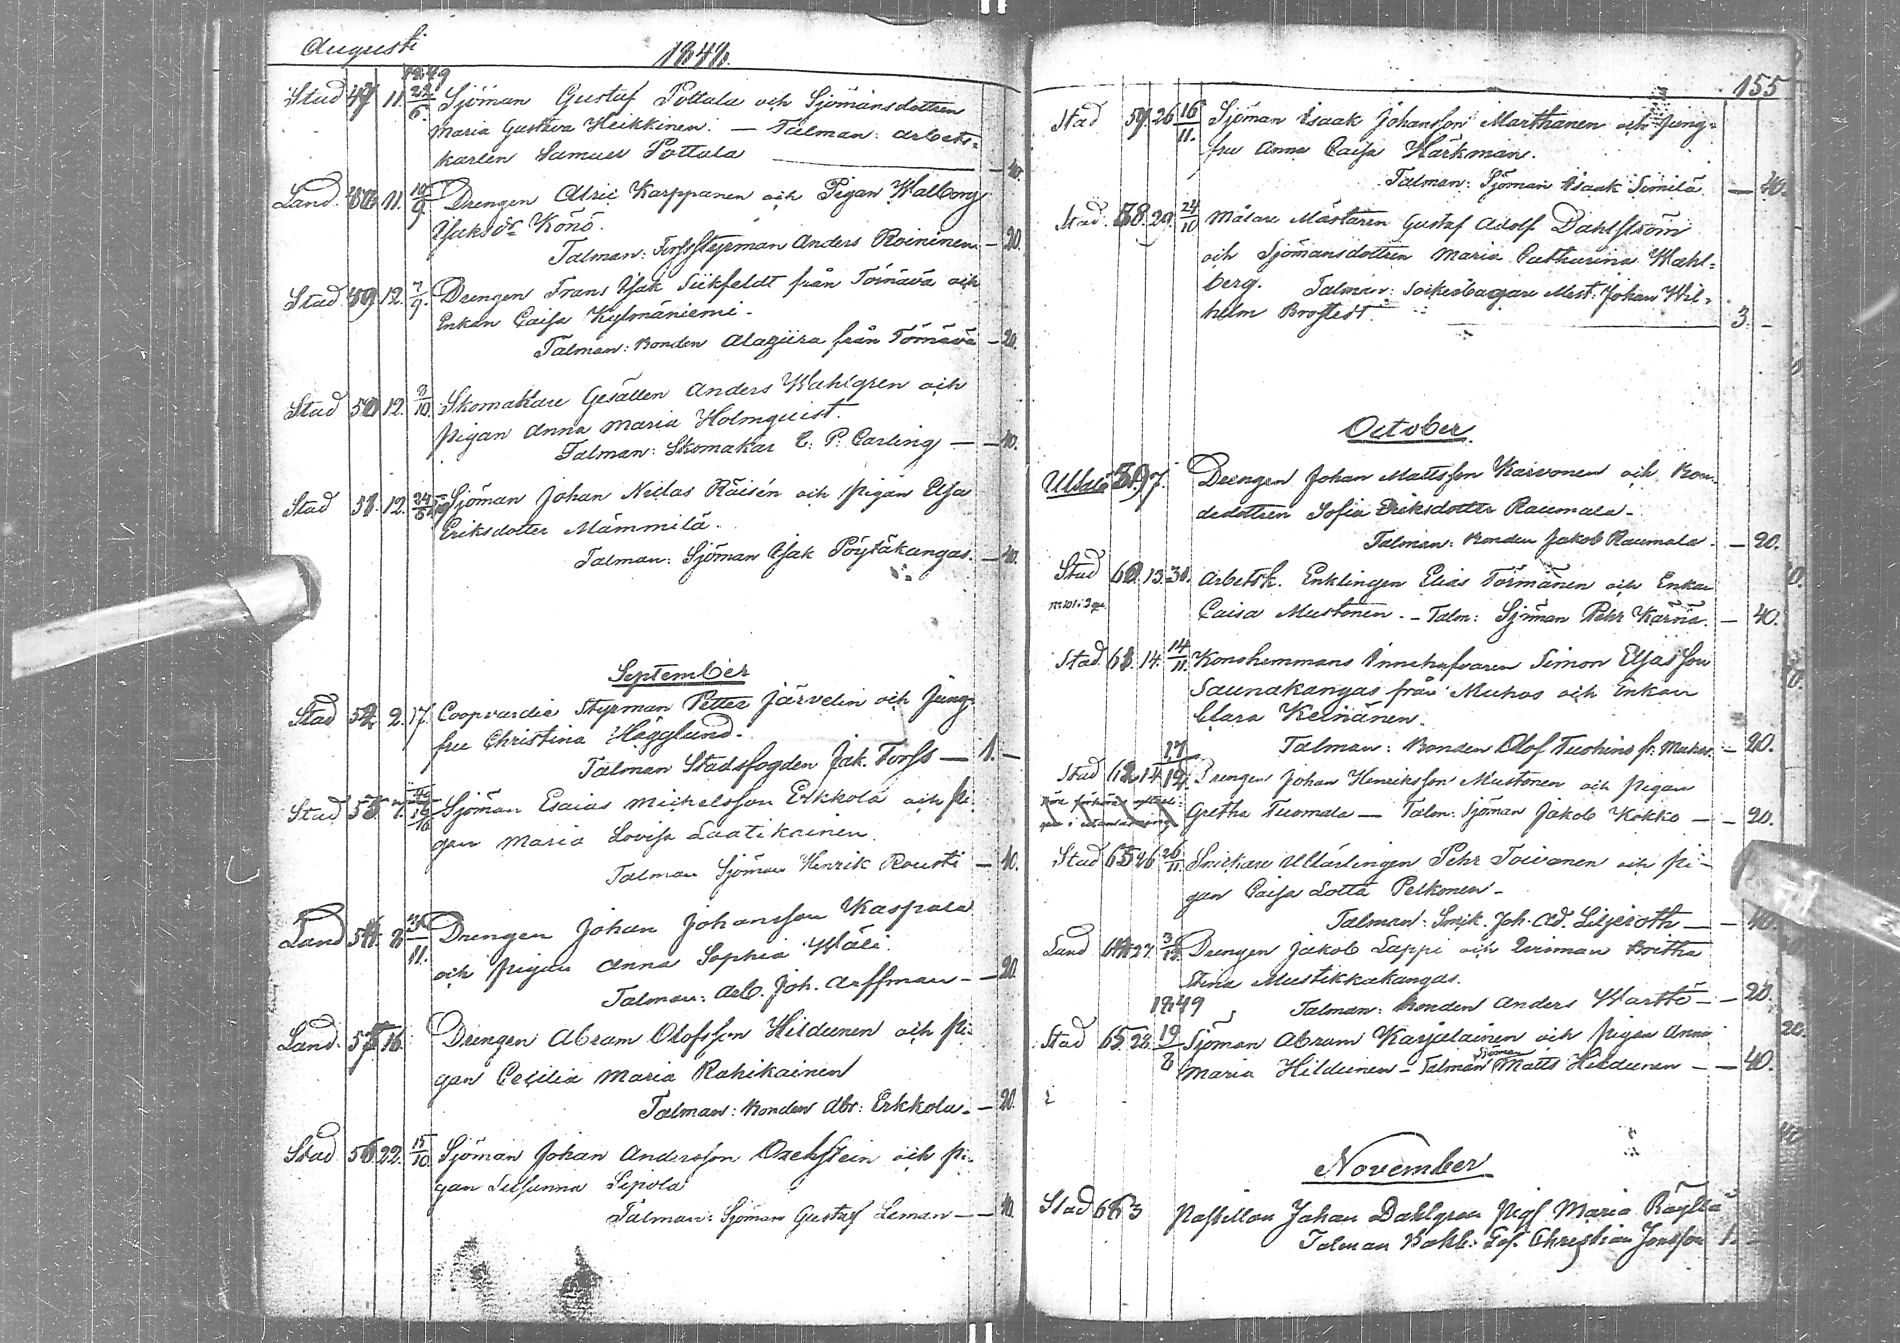 Augusti 1848.
1849
Stad 47 11. 22/6. Sjöman Gustaf Pottala och Sjömansdottren
Maria Gustava Heikkinen. — Talman: Arbets-
karlen Samuel Pottala — 40.
Land. 48 11. 10/9. Drengen Alric Karppanen och Pigan Walborg
Isaksdr Könö.
Talman: Anders Roininen — 20.
Stad 49 12. 7/9. Drengen Frans Isak Siikfeldt från Törnävä och
Enkan Caisa Kylmäniemi.
Talman: Bonden Alagiira från Törnävä — 20.
Stad 50 12. 9/10. Skomakare Gesällen Anders Wahlgren och
pigan Anna Maria Holmquist.
Talman: Skomakar E. P. Carling — 40.
Stad 51. 12. 24/5 Sjöman Johan Niclas Räisén och pigan Elsa
Eriksdotter Mämmilä.
Talman: Sjöman Isak Pöytäkangas. — 40.
September
Stad 52. 2. 17. Coopvardie Styrman Petter Järvelin och Jung-
fru Christina Hägglund.
Talman Stadsfogden Jak. Forss — 1. —
Stad 53. Sjöman Esaias Michelsson Erkkola och pi-
gan Maria Lovisa Laatikainen
Talman Sjöman Henrik Rousti — 40.
Land 54. 8. Drengen Johan Johansson Kaspala
11.
och pigan Anna Sophia Wäli.
Talman: Arb. Joh. Arffman — 20.
Land. 55 16. Drengen Abram Olofsson Hildunen och pi-
gan Cecilia Maria Rahikainen
Talman: Bonden Abr: Erkkola. — 20.
Stad 56 22. 15/10 Sjöman Johan Andersson Oxelstein och pi-
gan Susanna Sipola
Talman: Sjöman Gustaf Leman — 40.
155
Stad 57. 26 16/11. Sjöman Isaak Johansson Marthanen och Jung-
fru Anna Caisa Härkman.
Talman: Sjöman Isaak Similä — 40.
Stad. 58. 29. 24/10 Målare Mästaren Gustaf Adolf Dahlström
och Sjömansdottren Maria Catharina Wahl-
berg. Talman: Sockerbagare Mäst: Johan Wil-
helm Brostedt. 3. —
October.
Uleå 59. 7. Drengen Johan Mattsson Karvonen och Bon-
dedottren Sofia Eriksdotter Raumala.
Talman: Bonden Jakob Raumala. — 20.
Stad 60. 13. 30. Arbetsk. Enklingen Elias Törmänen och Enkan
Caisa Mustonen. — Talm: Sjöman Pehr Kärnä. — 40.
Stad. 61. 14. 14/11. Kronohemmans Innehafvaren Simon Eliasson
Saunakangas från Muhos och Enkan
Clara Keinänen.
Talman: Bonden Olof Tuohino fr. Muhos. — 20.
Stad 62. 14. 27/12. Drengen Johan Henriksson Mustonen och pigan
Gretha Tuomala — Talm: Sjöman Jakob Kokko — 20.
Stad 63. 26 26/11. Snickare Utlärlingen Pehr Toivanen och pi-
gan Caisa Lotta Pelkonen.
Talman: Snick. Joh. Ad. Liljeroth — 40.
Land 64. 27. 3/12. Drengen Jakob Lappi och Qvinnan Britha
Stina Mustikkakangas.
1849 Talman: Bonden Anders Warttö — 20.
Stad 65. 28. 19/8 Sjöman Abram Karjalainen och pigan Anna
Maria Hildunen — Talman Sjöman Matts Hildunen — 40.
November
Stad 66 3 Postillon Johan Dahlgren pig. Maria Räyttä
Talman Christian Jonsson 1. —